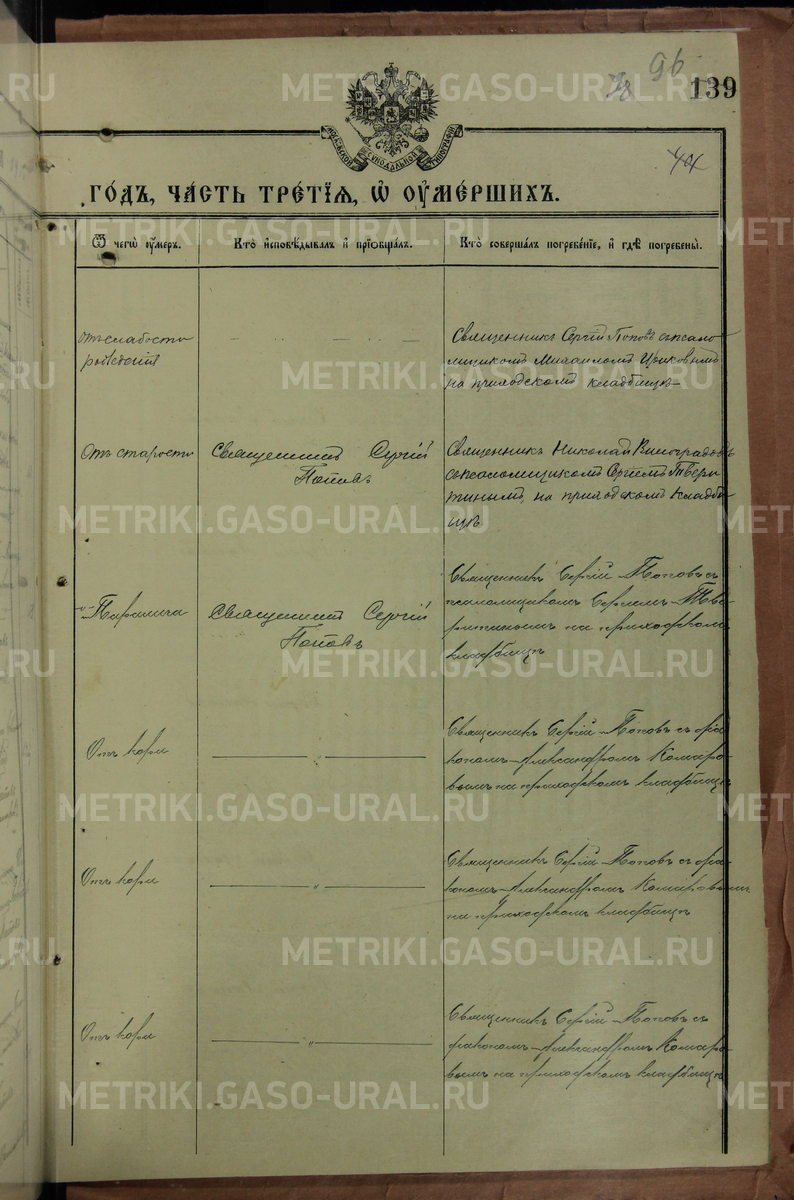 96
139
МОСКОВСКОЙ СѴНОДАЛЬНОЙ ТИПОГРАФІИ
ГО́ДЪ, ЧА́СТЬ ТРЕ́ТІѦ, Ѽ ОУ҆МЕ́РШИХЪ.
Ѿ чегѡ̀ оу҆́меръ.
Кто̀ и҆сповѣ́дывалъ и҆ прїѡбща́лъ.
Кто̀ соверша́лъ погребе́нїе, и҆ гдѣ̀ погребены̀.
Отъ слабости
рожденія
Священникъ Сергій Поповъ съ псало
мщикомъ Михаиломъ
на приходскомъ кладбищѣ
Отъ старости
Священникъ Сергій
Поповъ
Священникъ Николай Виноградовъ
съ псаломщикомъ Сергіемъ Твери
тинымъ, на приходскомъ кладби
щѣ
Священникъ Сергій
Поповъ
Священникъ Сергій Поповъ съ
псаломщикомъ Сергіемъ Тве
ритинымъ на приходскомъ
кладбищѣ
Отъ кори
Священникъ Сергій Поповъ съ діа
кономъ Александромъ Комаро
вымъ на приходскомъ кладбищѣ
Отъ кори
Священникъ Сергій Поповъ съ діа
кономъ Александромъ Комаровымъ
на приходскомъ кладбищѣ
Отъ кори
Священникъ Сергій Поповъ съ
діакономъ Александромъ Комаро
вымъ на приходскомъ кладбищѣ
METRIKI.GASO-URAL.RU